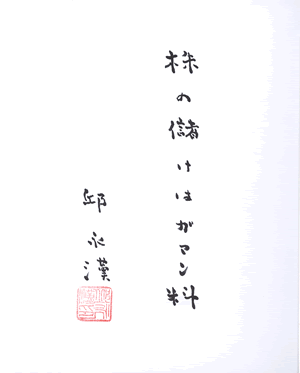 株の儲けはガマン料
邱永漢